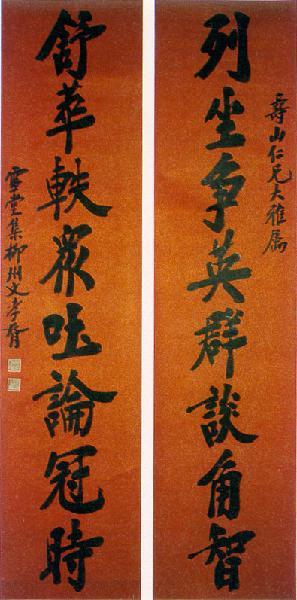 壽山仁兄大雅属
列坐争英群談角智
舒華軼眾吐論冠時
雪堂集柳州文孝胥